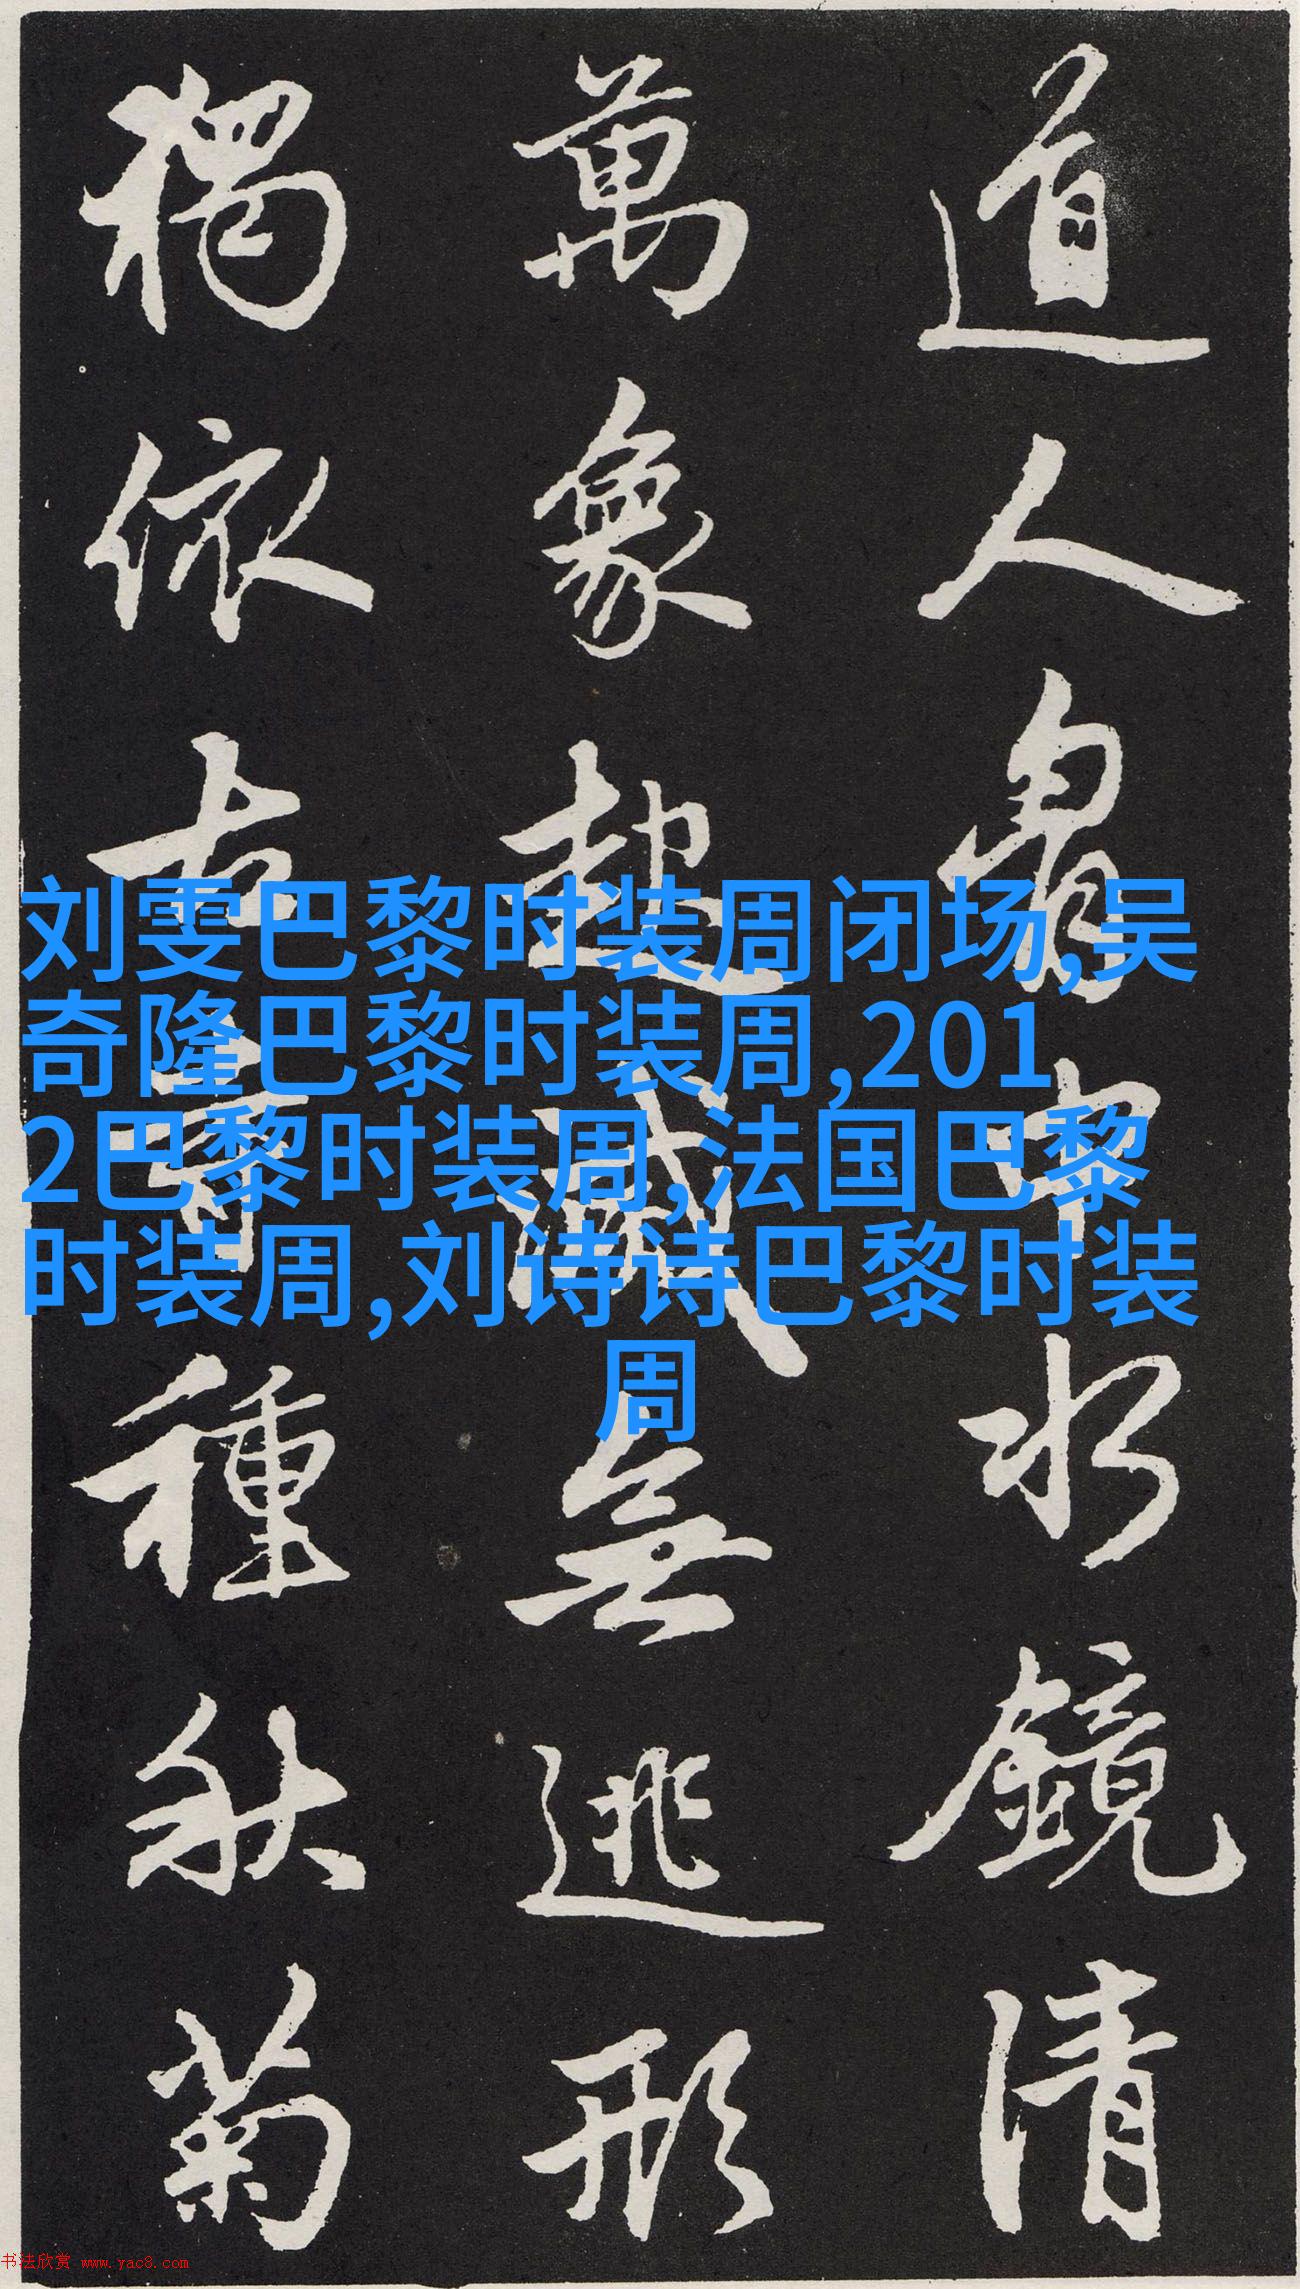 道人胷中水鏡清
萬象起滅無逃形
獨依古寺種秋菊
刘雯巴黎时装周闭场,吴
奇隆巴黎时装周,201
2巴黎时装周,法国巴黎
时装周,刘诗诗巴黎时装
周
书法欣赏 www.yac8.com